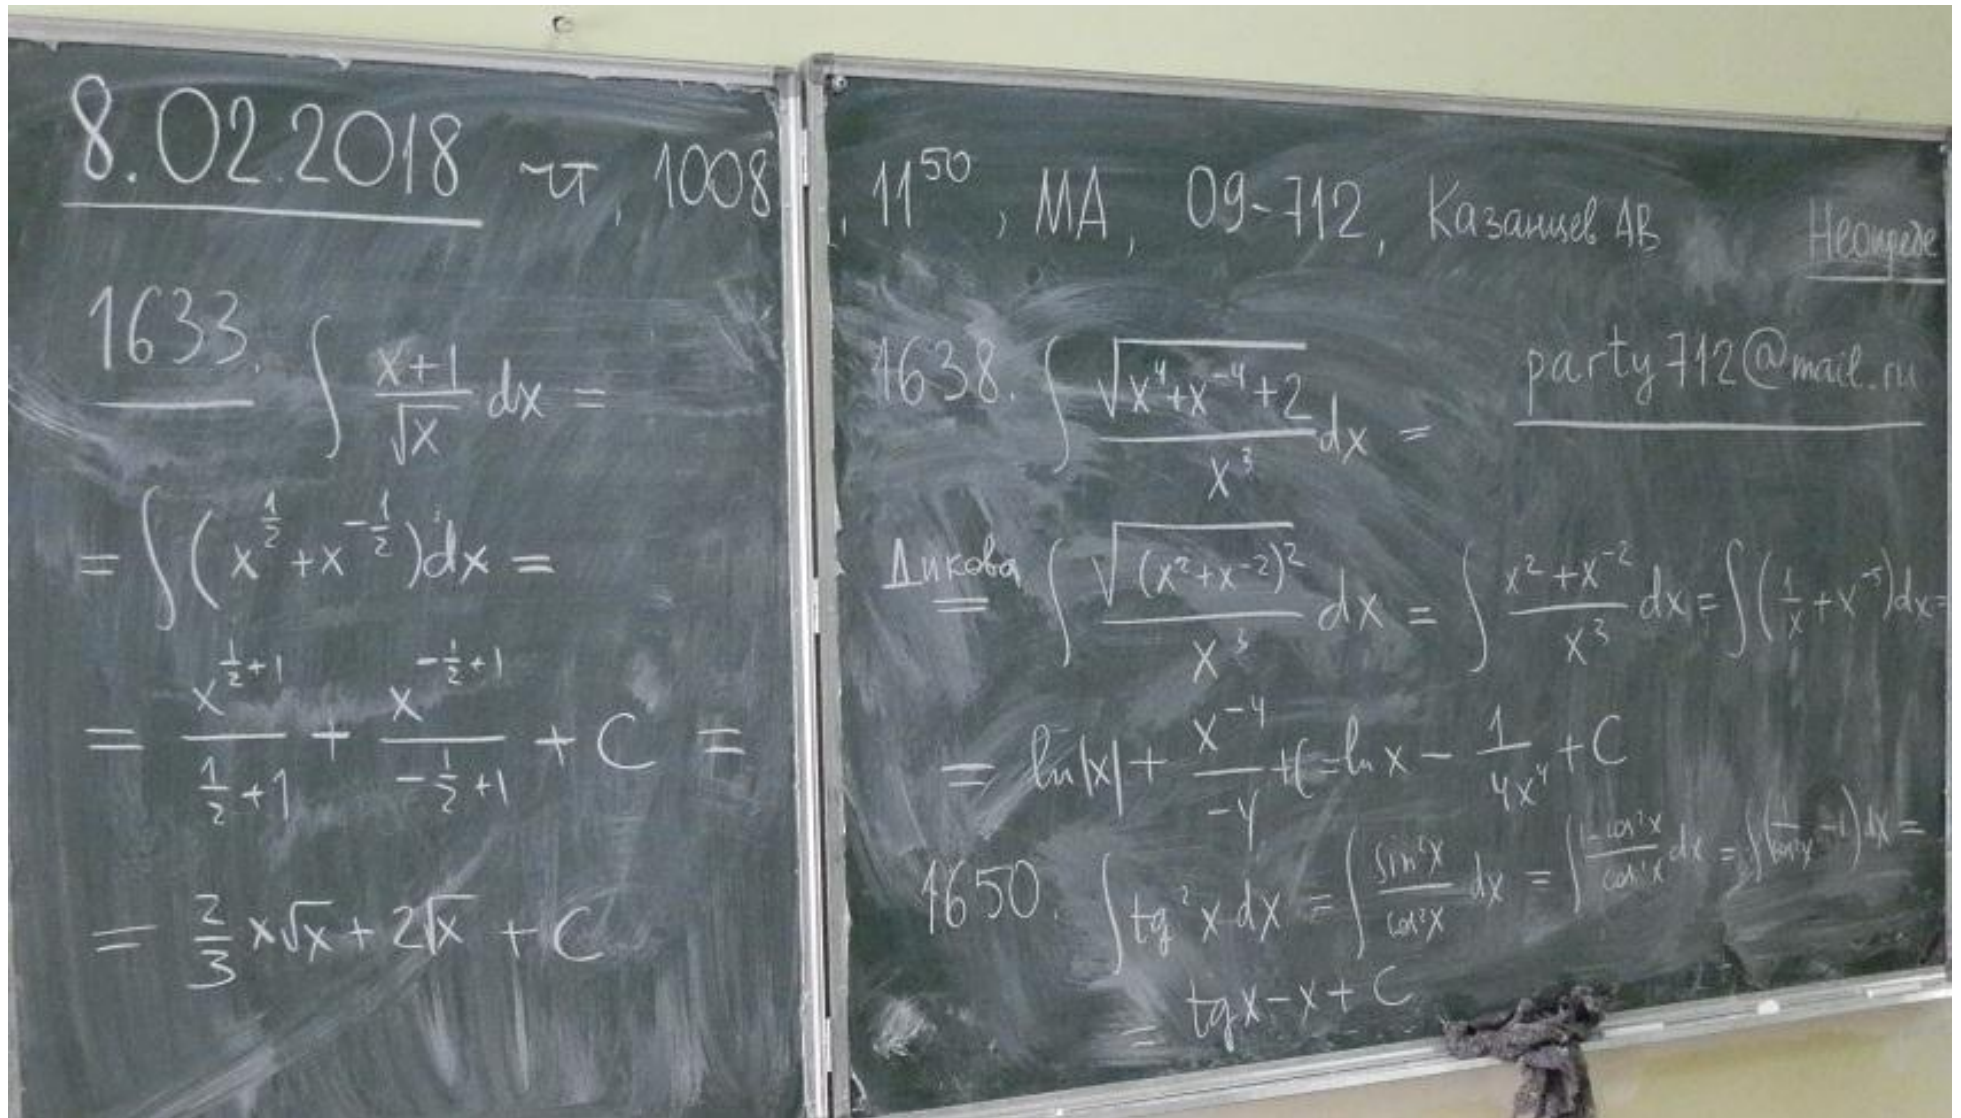 8.02.2018 чт, 1008, 11⁵⁰, МА, 09-712, Казанцев АВ Неопреде
1633. ∫ (x+1)/√x dx =
= ∫ (x^(1/2) + x^(-1/2)) dx =
= x^(1/2+1)/(1/2+1) + x^(-1/2+1)/(-1/2+1) + C =
= 2/3 x√x + 2√x + C
1638. ∫ √(x⁴+x⁻⁴+2)/x³ dx =
party712@mail.ru
Дикова ∫ √((x²+x⁻²)²)/x³ dx = ∫ (x²+x⁻²)/x³ dx = ∫ (1/x + x⁻⁵) dx =
= ln|x| + x⁻⁴/-4 + C = ln x - 1/(4x⁴) + C
1650. ∫ tg²x dx = ∫ sin²x/cos²x dx = ∫ (1-cos²x)/cos²x dx = ∫ (1/cos²x - 1) dx =
= tgx - x + C